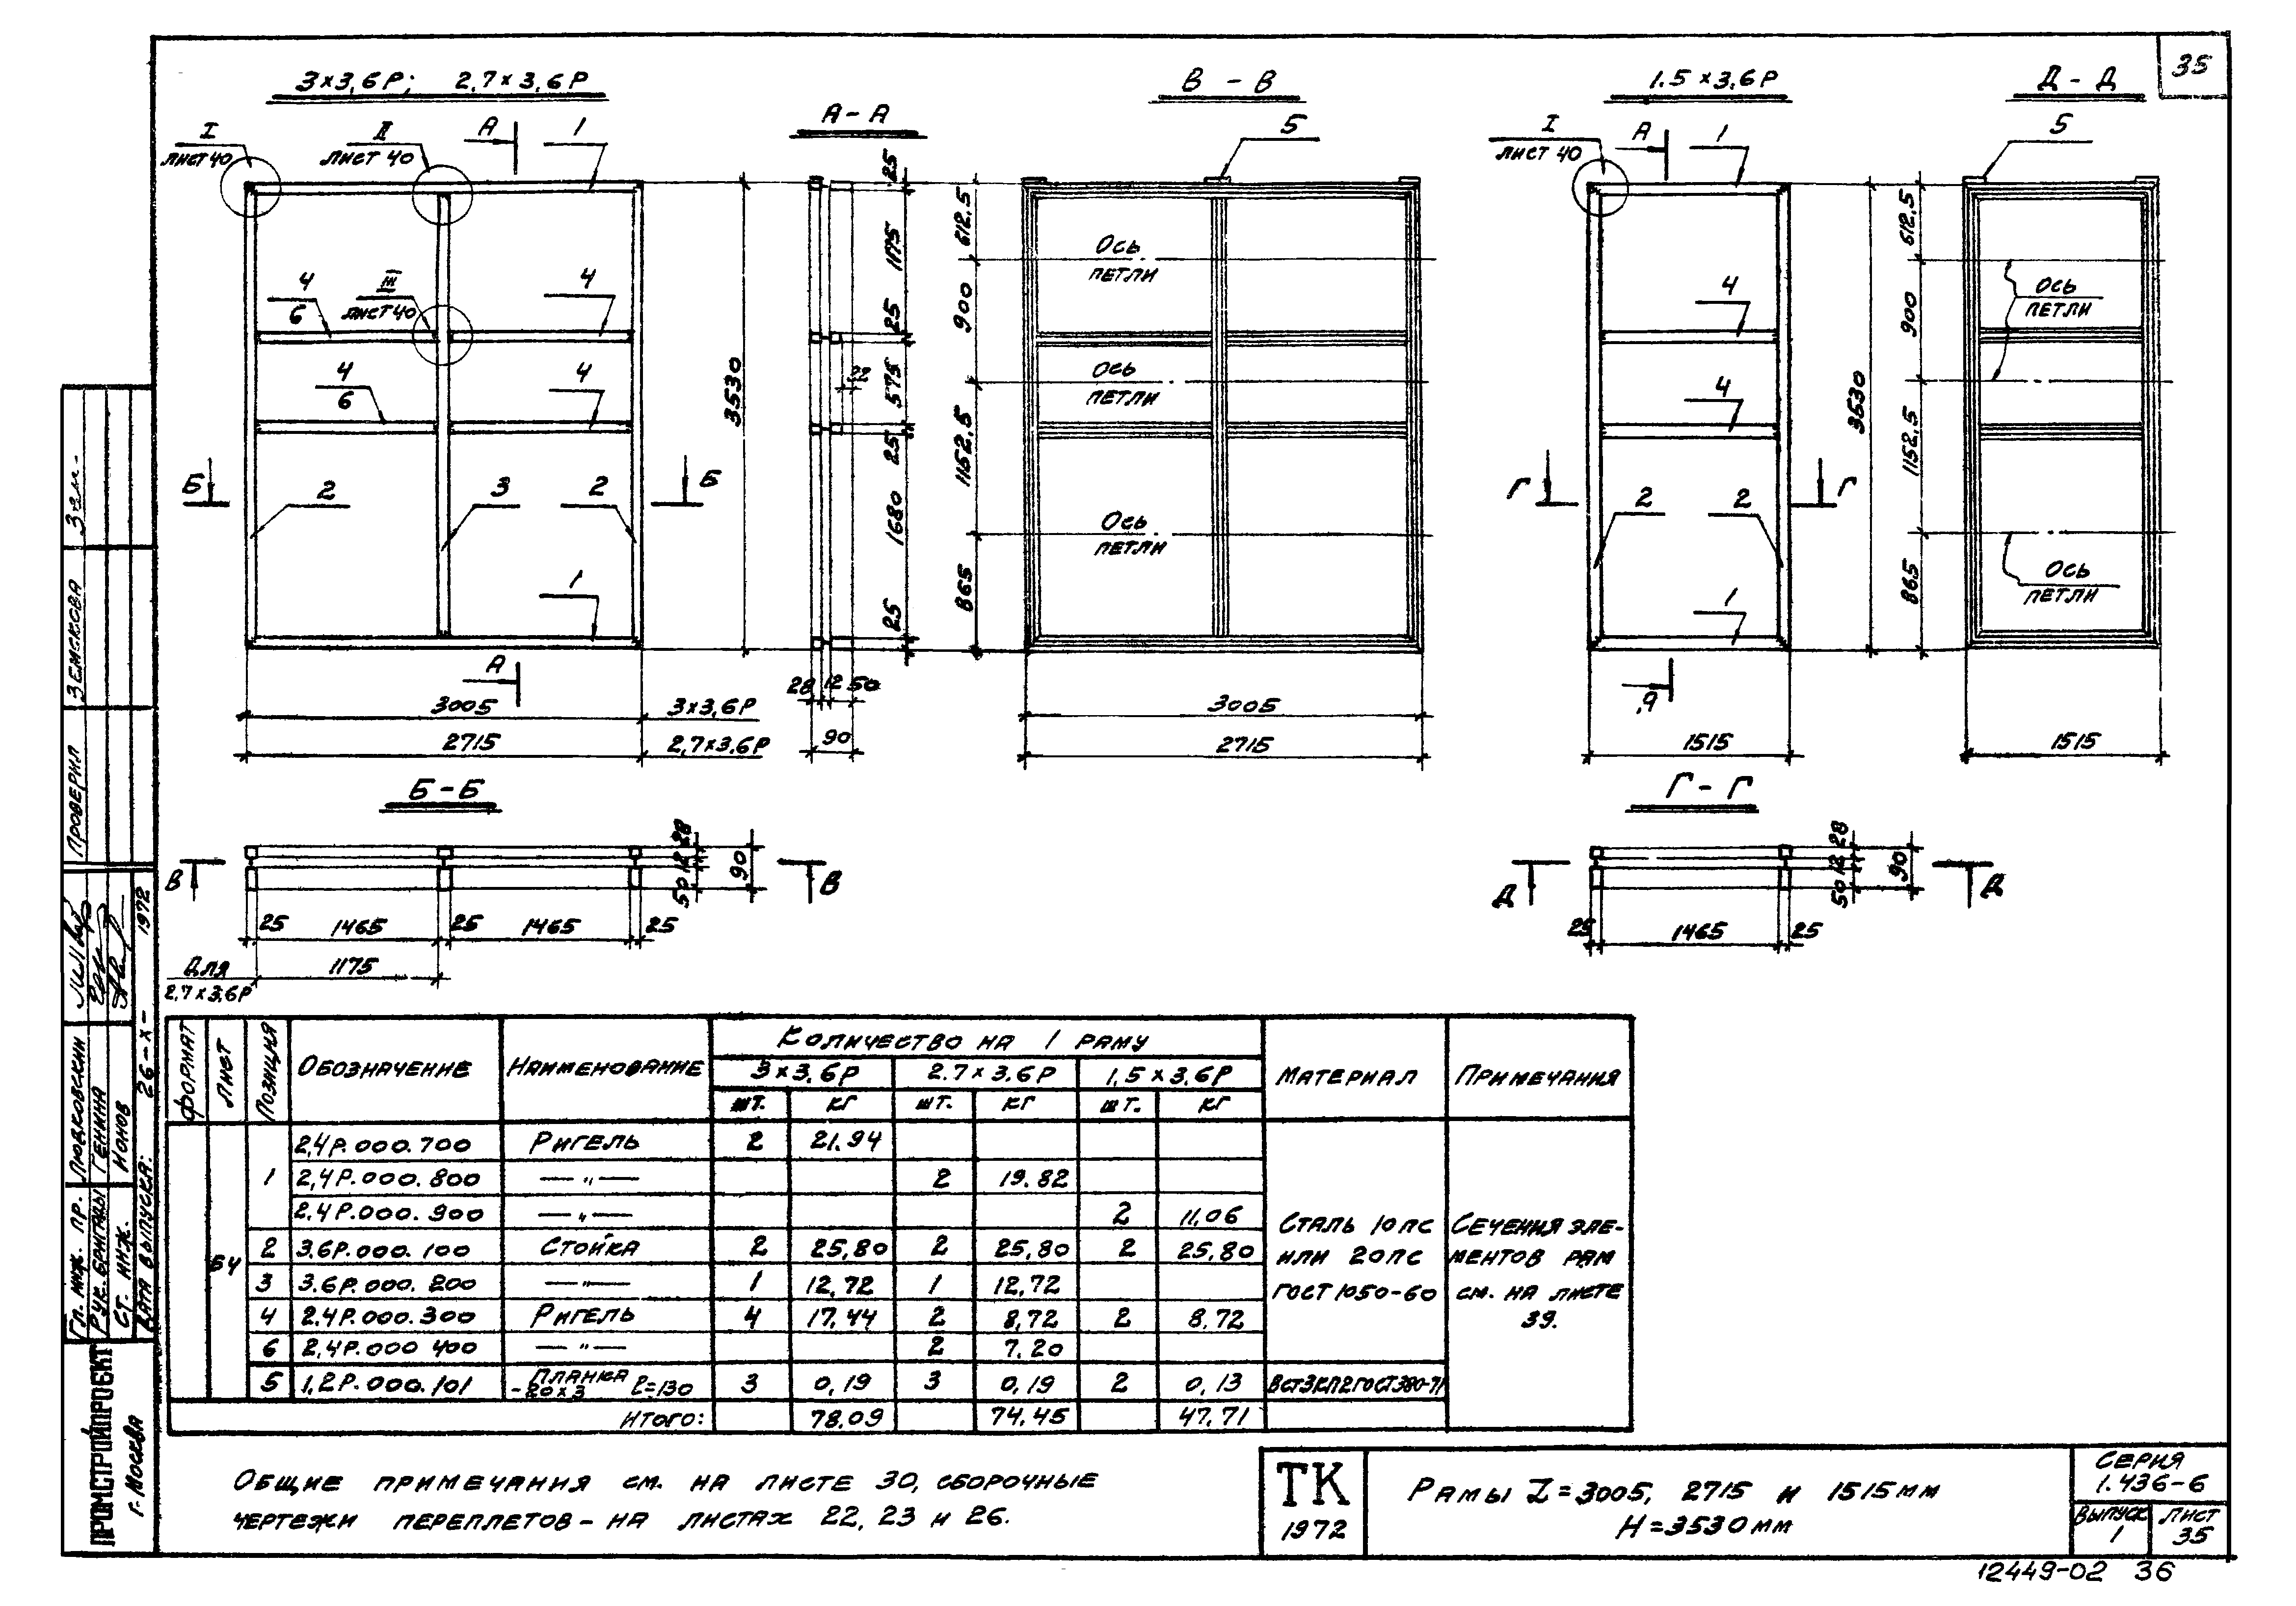 35
3×3,6Р; 2,7×3,6Р
А-А
В-В
1.5×3,6Р
Д-Д
I
лист 40
II
лист 40
А
1
5
I
лист 40
А
1
5
4
6
III
лист 40
4
4
6
4
Б
2
3
2
Б
1
А
3005
3×3,6Р
2715
2,7×3,6Р
3530
25
1175
25
575
25
1680
25
28
12
50
90
612,5
900
1152,5
865
Ось
петли
Ось
петли
Ось
петли
3005
2715
4
4
Г
2
2
Г
1
1515
3530
612,5
900
1152,5
865
Ось
петли
Ось
петли
1515
Б-Б
В
В
28
12
50
90
25
1465
25
1465
25
Для
2,7×3,6Р
1175
Г-Г
Д
Д
28
12
50
90
25
1465
25
Формат
Лист
Позиция
Обозначение
Наименование
Количество на 1 раму
Материал
Примечания
3×3,6Р
2.7×3.6Р
1,5×3.6Р
шт.
кг
шт.
кг
шт.
кг
2,4Р.000.700 Ригель 2 21.94
1 2,4Р.000.800 —"— 2 19.82
2.4Р.000.900 —"— 2 11,06
2 3.6Р.000.100 Стойка 2 25,80 2 25,80 2 25,80
3 3.6Р.000.200 —"— 1 12,72 1 12,72
4 2.4Р.000.300 Ригель 4 17,44 2 8,72 2 8.72
6 2,4Р.000 400 —"— 2 7.20
5 1,2Р.000.101 Планка
-20×3 ℓ=130
3 0,19 3 0,19 2 0,13
Итого: 78.09 74.45 47.71
БЧ
Сталь 10пс
или 20пс
ГОСТ 1050-60
ВСт3кп2 ГОСТ 380-71
Сечения эле-
ментов рам
см. на листе
39.
Общие примечания см. на листе 30, сборочные
чертежи переплетов - на листах 22, 23 и 26.
ТК
1972
Рамы L=3005, 2715 и 1515мм
Н=3530мм
Серия
1.436-6
Выпуск
1
Лист
35
12449-02 36
Проверил
Гл. инж. пр.
Людковский
Рук. бригады
Генина
Ст. инж.
Ионов
Дата выпуска: 26-X- 1972
ПРОМСТРОЙПРОЕКТ
г. Москва